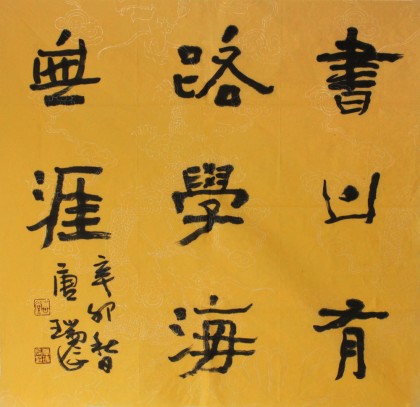 書山有
路學海
無涯
辛卯智
唐瑞